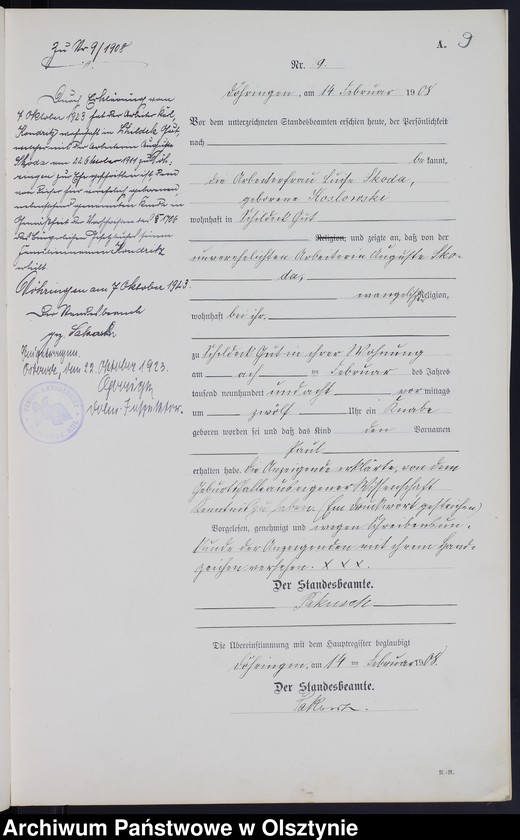 Zu Nr 9/1908
A. 9
Nr. 9.
Döhringen, am 14 Februar 1908
Vor dem unterzeichneten Standesbeamten erschien heute, der Persönlichkeit
nach
be kannt,
die Arbeiterfrau Luise Skoda,
geborene Koslowski
wohnhaft in Schildeck Gut
Religion, und zeigte an, daß von der
unverehelichten Arbeiterin Auguste Sko-
da,
evangelisch Religion,
wohnhaft bei ihr.
zu Schildeck Gut in ihrer Wohnung
am acht en Februar des Jahres
tausend neunhundert und acht vor mittags
um zwölf Uhr ein Knabe
geboren worden sei und daß das Kind den Vornamen
Paul
erhalten habe. Die Anzeigende erklärte, von dem
Geburtsfalle aus eigener Wissenschaft
Kenntnis zu haben. (Ein Druckwort gestrichen)
Vorgelesen, genehmigt und wegen Schreibensun-
kunde der Anzeigenden mit ihrem Hand-
zeichen versehen. X X X.
Der Standesbeamte.
Die Übereinstimmung mit dem Hauptregister beglaubigt
Döhringen, am 14 ten Februar 1908.
Der Standesbeamte.
Durch Erklärung vom
7 Oktober 1923 hat der Arbeiter Karl
Kondritz wohnhaft in Schildeck Gut,
der Arbeiterin Auguste
Skoda am 22 Oktober 1911 zu Döh-
ringen zur Ehe
Kinde in
§ 1706
des Bürgerlichen Gesetzbuchs seinen
Familiennamen Kondritz
erteilt.
Döhringen am 7 Oktober 1923.
Der Standesbeamte
gez.
Eingetragen.
Osterode, den 22. October 1923.
A.-R.
Archiwum Państwowe w Olsztynie